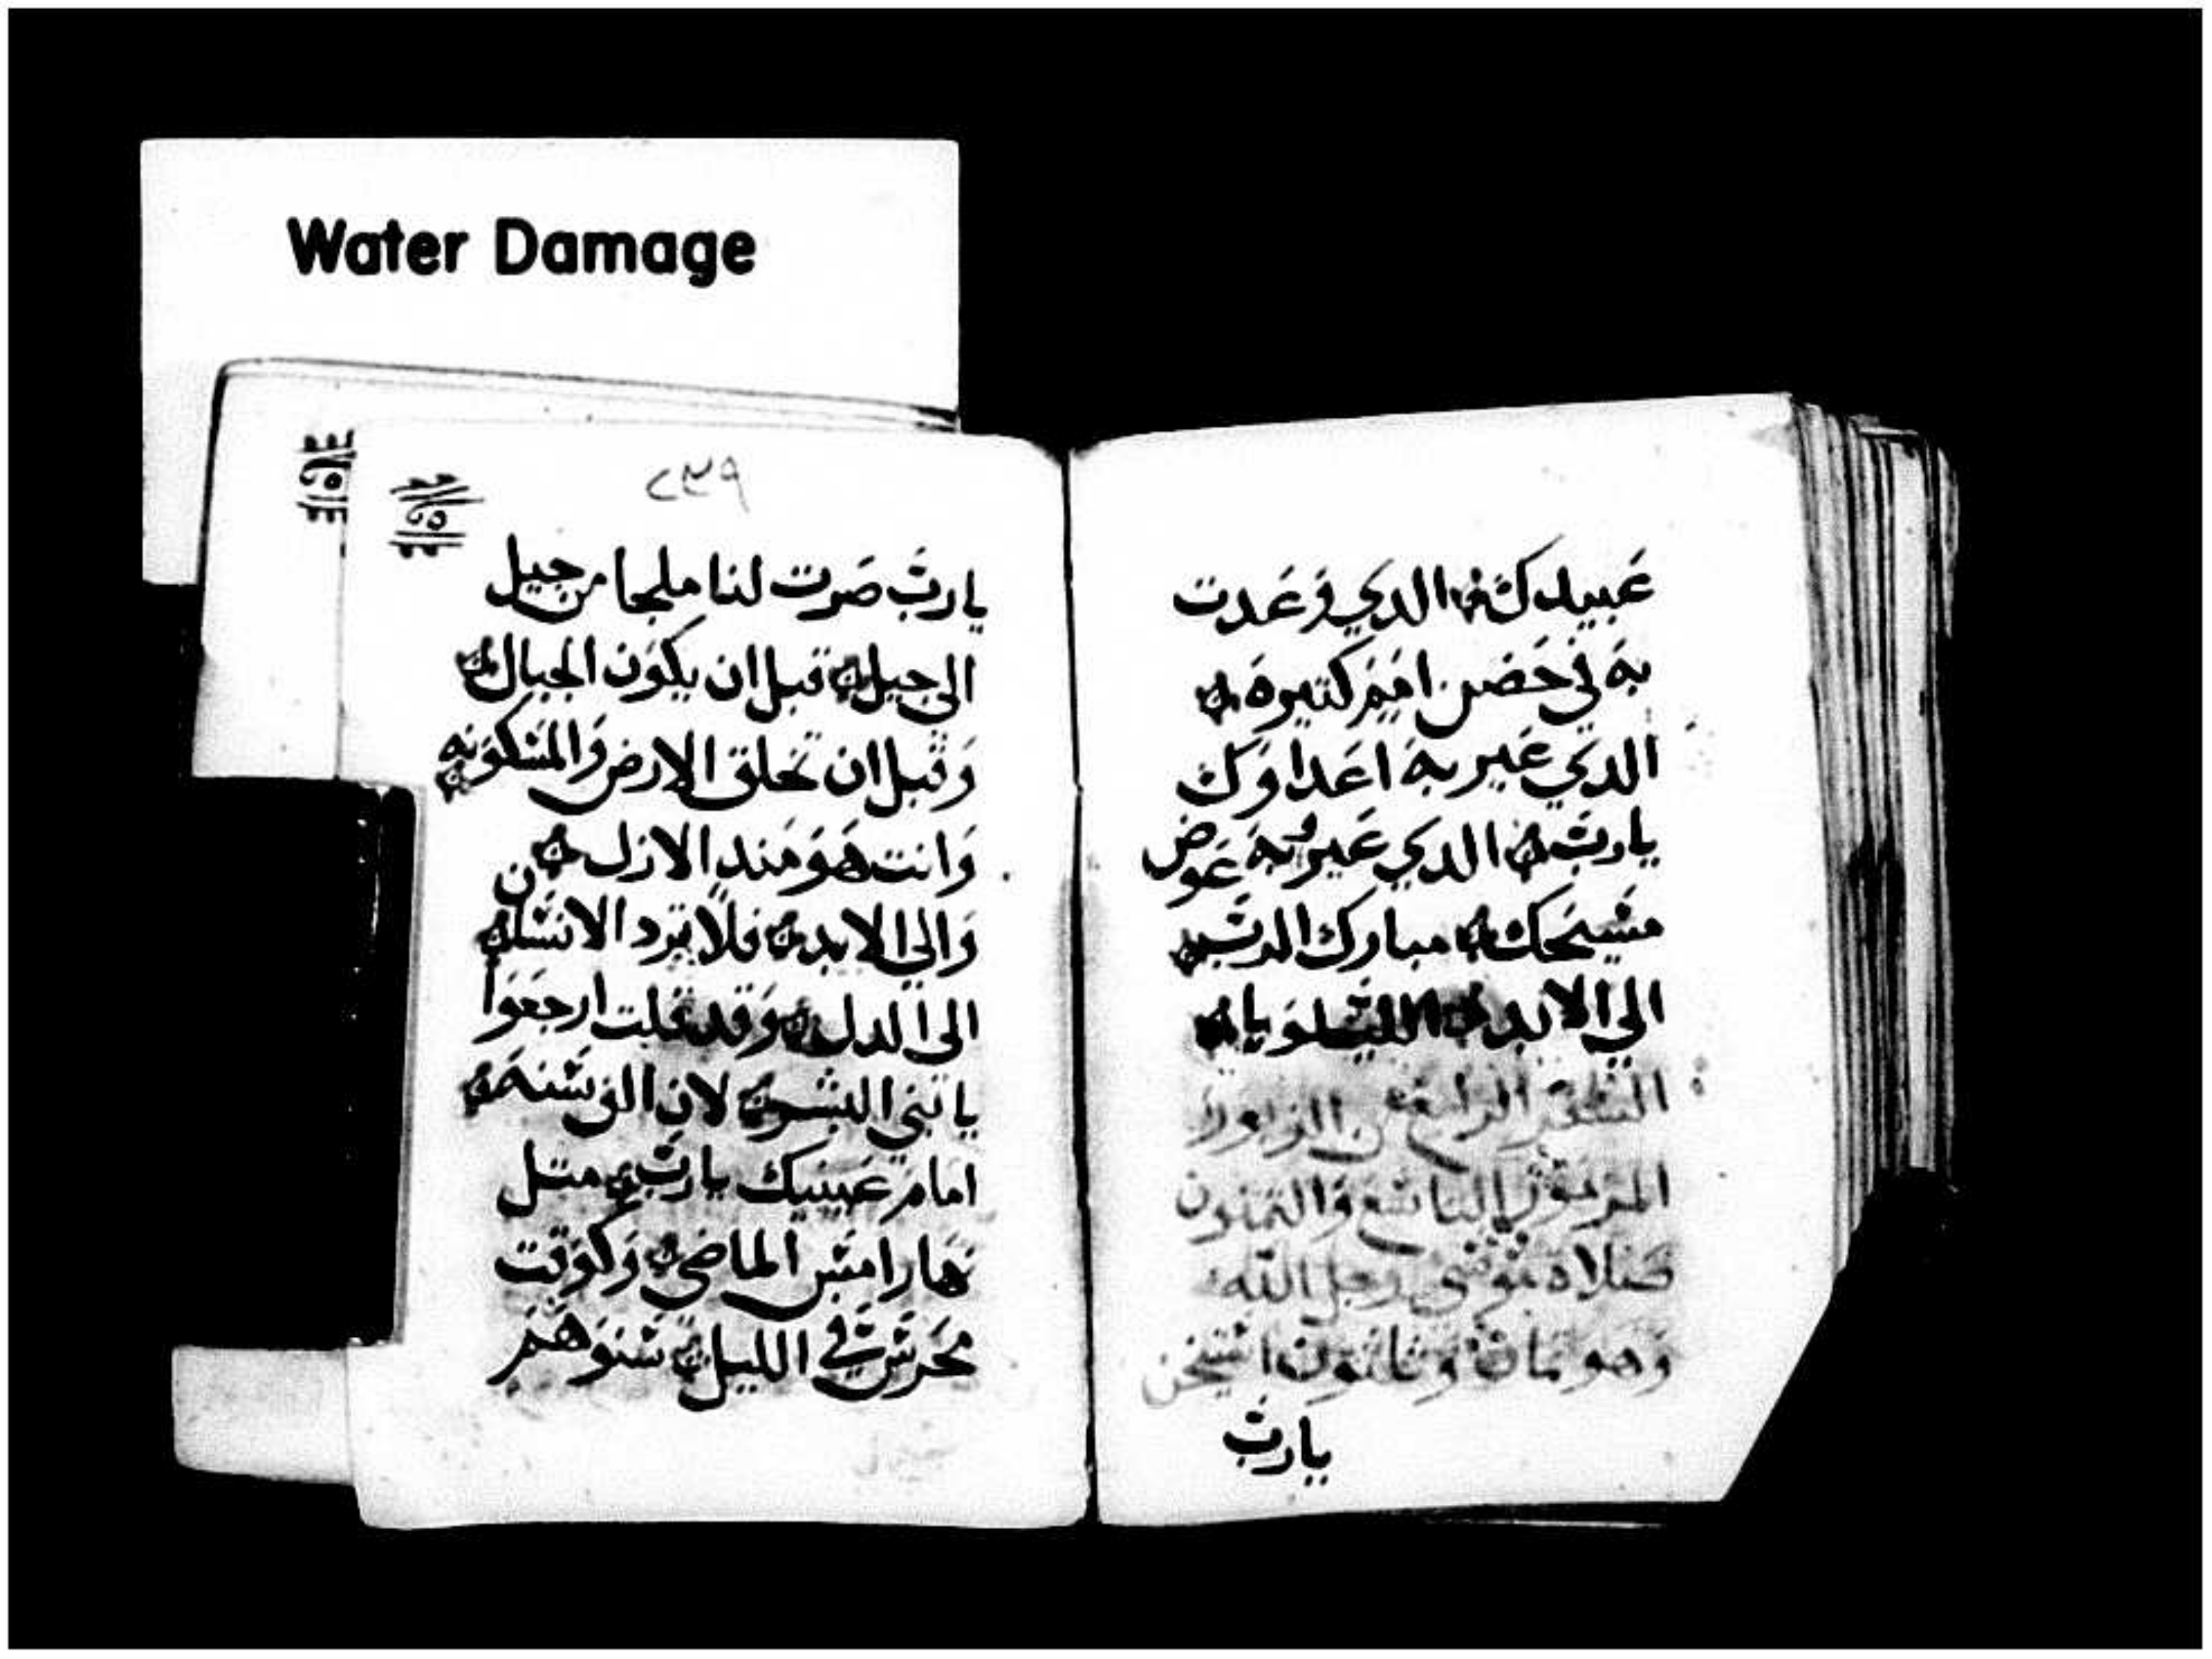 Water Damage
عبيدك الدي وعدت
به في حضن امم كتيره
الدي عير به اعداوك
يارب الدي عير به عوض
مسيحك مبارك الرب
الي الابد الليلويا
السفر الرابع من الزبور
المزمور التاسع والتمنون
صلاه موسي رجل الله
وهو تمان وتمانون استيخن
يارب
٢٣٩
يارب صرت لنا ملجا من جيل
الى جيل قبل ان يكون الجبال
وقبل ان تخلق الارض والمسكونه
وانت هو مند الازل
والي الابد فلا ترد الانسان
الى الدل وقد قلت ارجعوا
يا بني البشر لان الف سنه
امام عينيك يارب متل
نهار امس الماضي وكوقت
محرس في الليل سنوهم